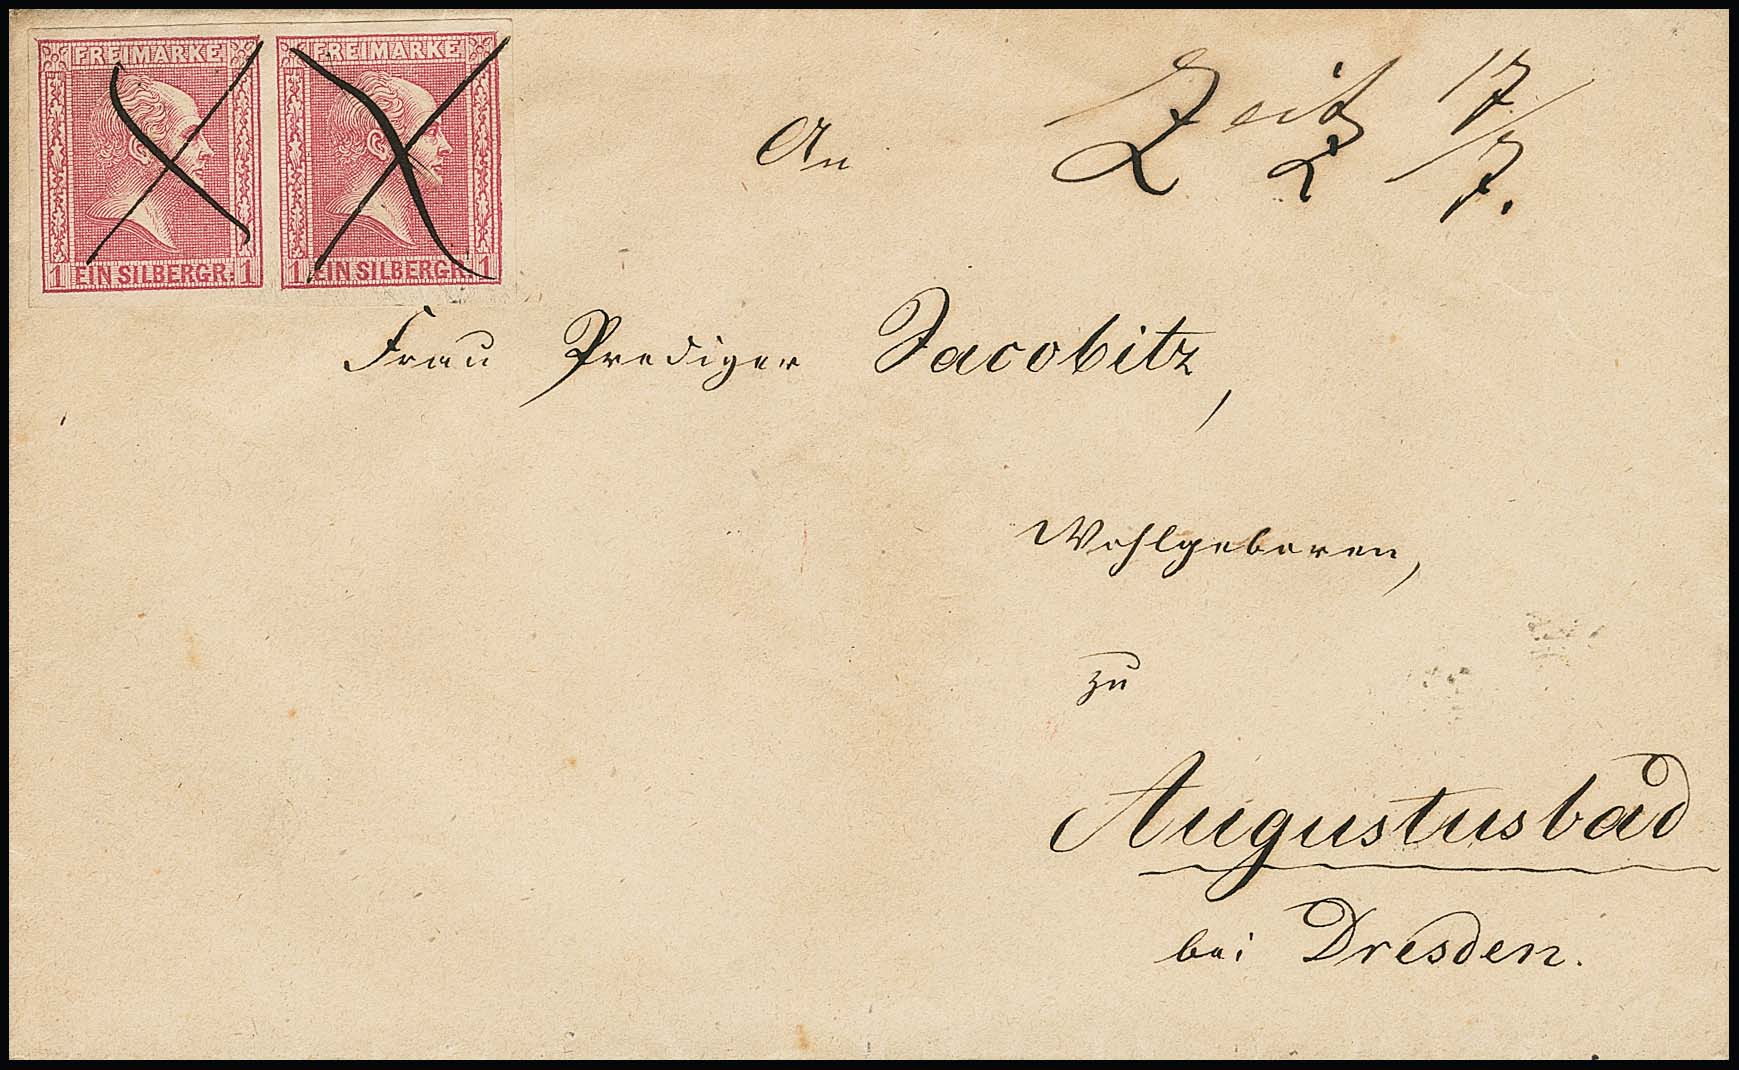 FREIMARKE FREIMARKE
1 EIN SILBERGR: 1 1 EIN SILBERGR: 1
Zeitz 17/7.
An
Frau Prediger Jacobitz,
Wohlgeboren,
zu
Augustusbad
bei Dresden.